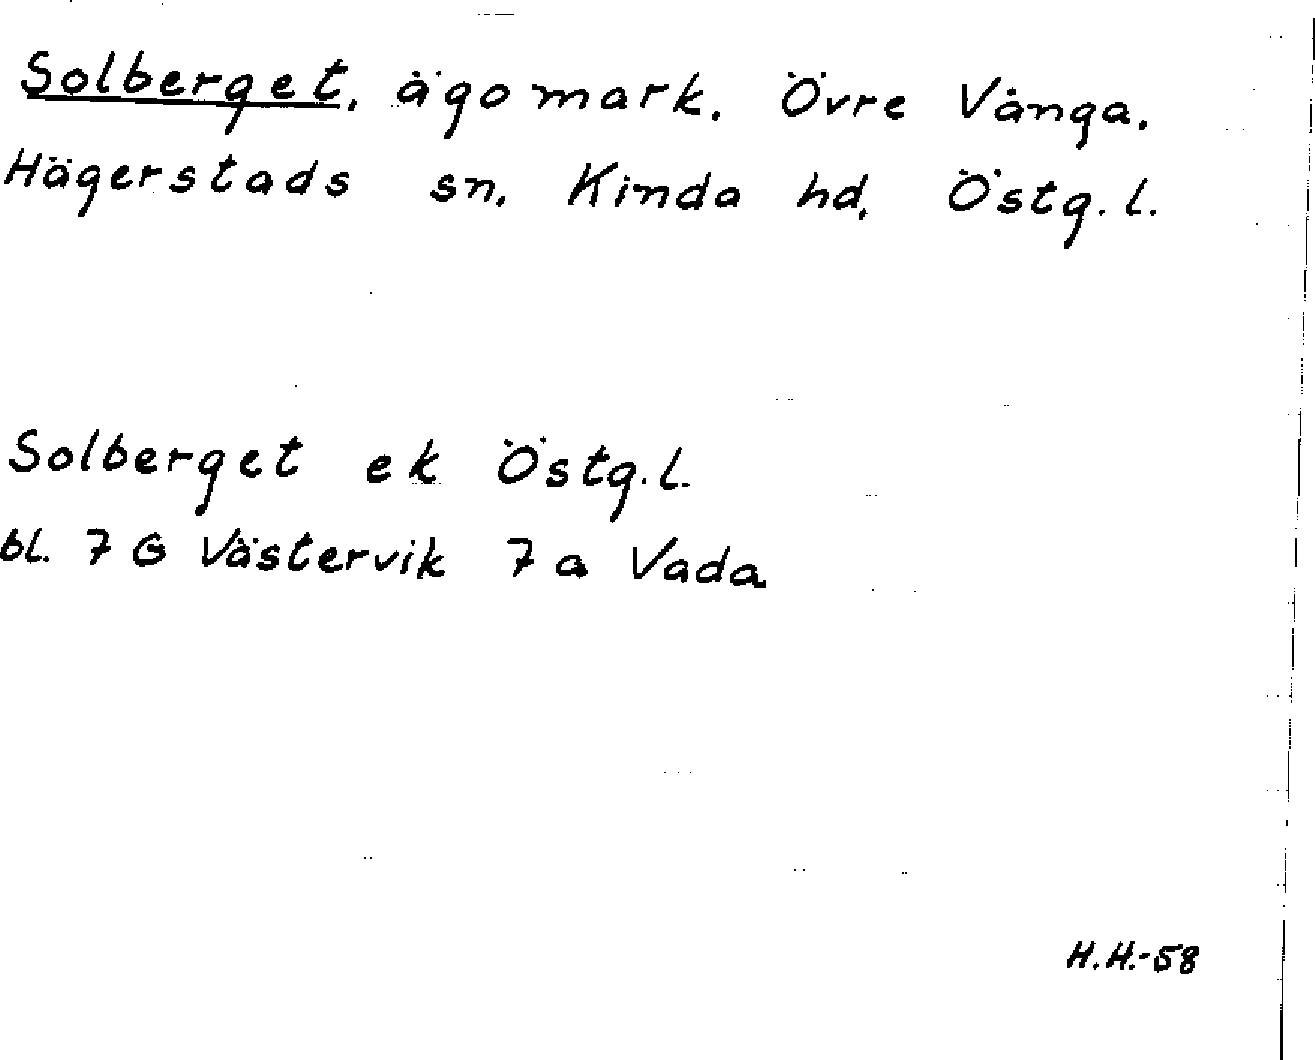 Solberget, ägomark. Övre Vånga.
Hägerstads sn. Kinda hd. Östg. l.
Solberget ek Östg. l.
bl. 7 G Västervik 7 a Vada
H.H.-58